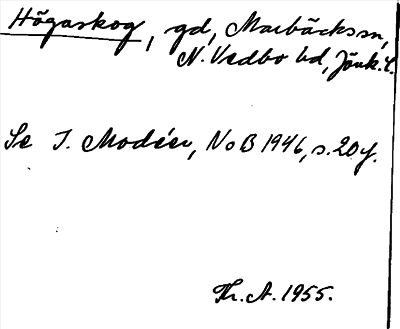 Högaskog, gd, Marbäcks sn,
N. Vedbo hd, Jönk. l.
Se I. Modéer, NoB 1946, s. 20 f.
Th. A. 1955.